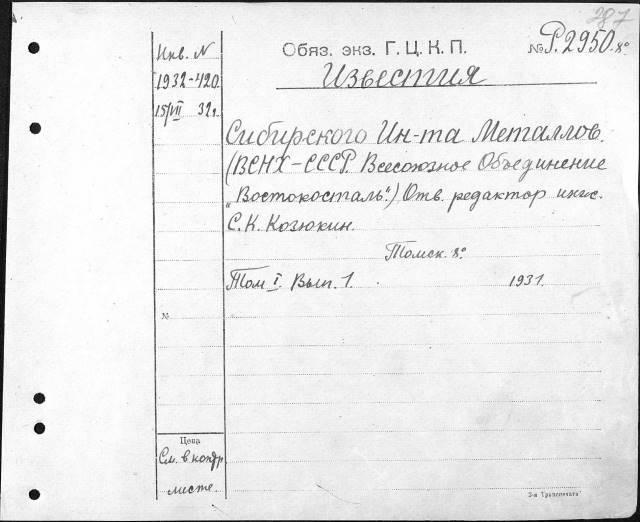 287
Обяз. экз. Г.Ц.К.П.
№ Р.2950.8°
Известия
Инв. N
1932-420
15/VII 32г.
Сибирского Ин-та Металлов.
(ВСНХ-СССР. Всесоюзное Объединение
„Востокосталь".) Отв. редактор инж.
С.К. Козюкин.
Томск. 8°
Том I. Вып. 1. 1931.
№
Цена
См. в контр
листе.
3-я Транспечати